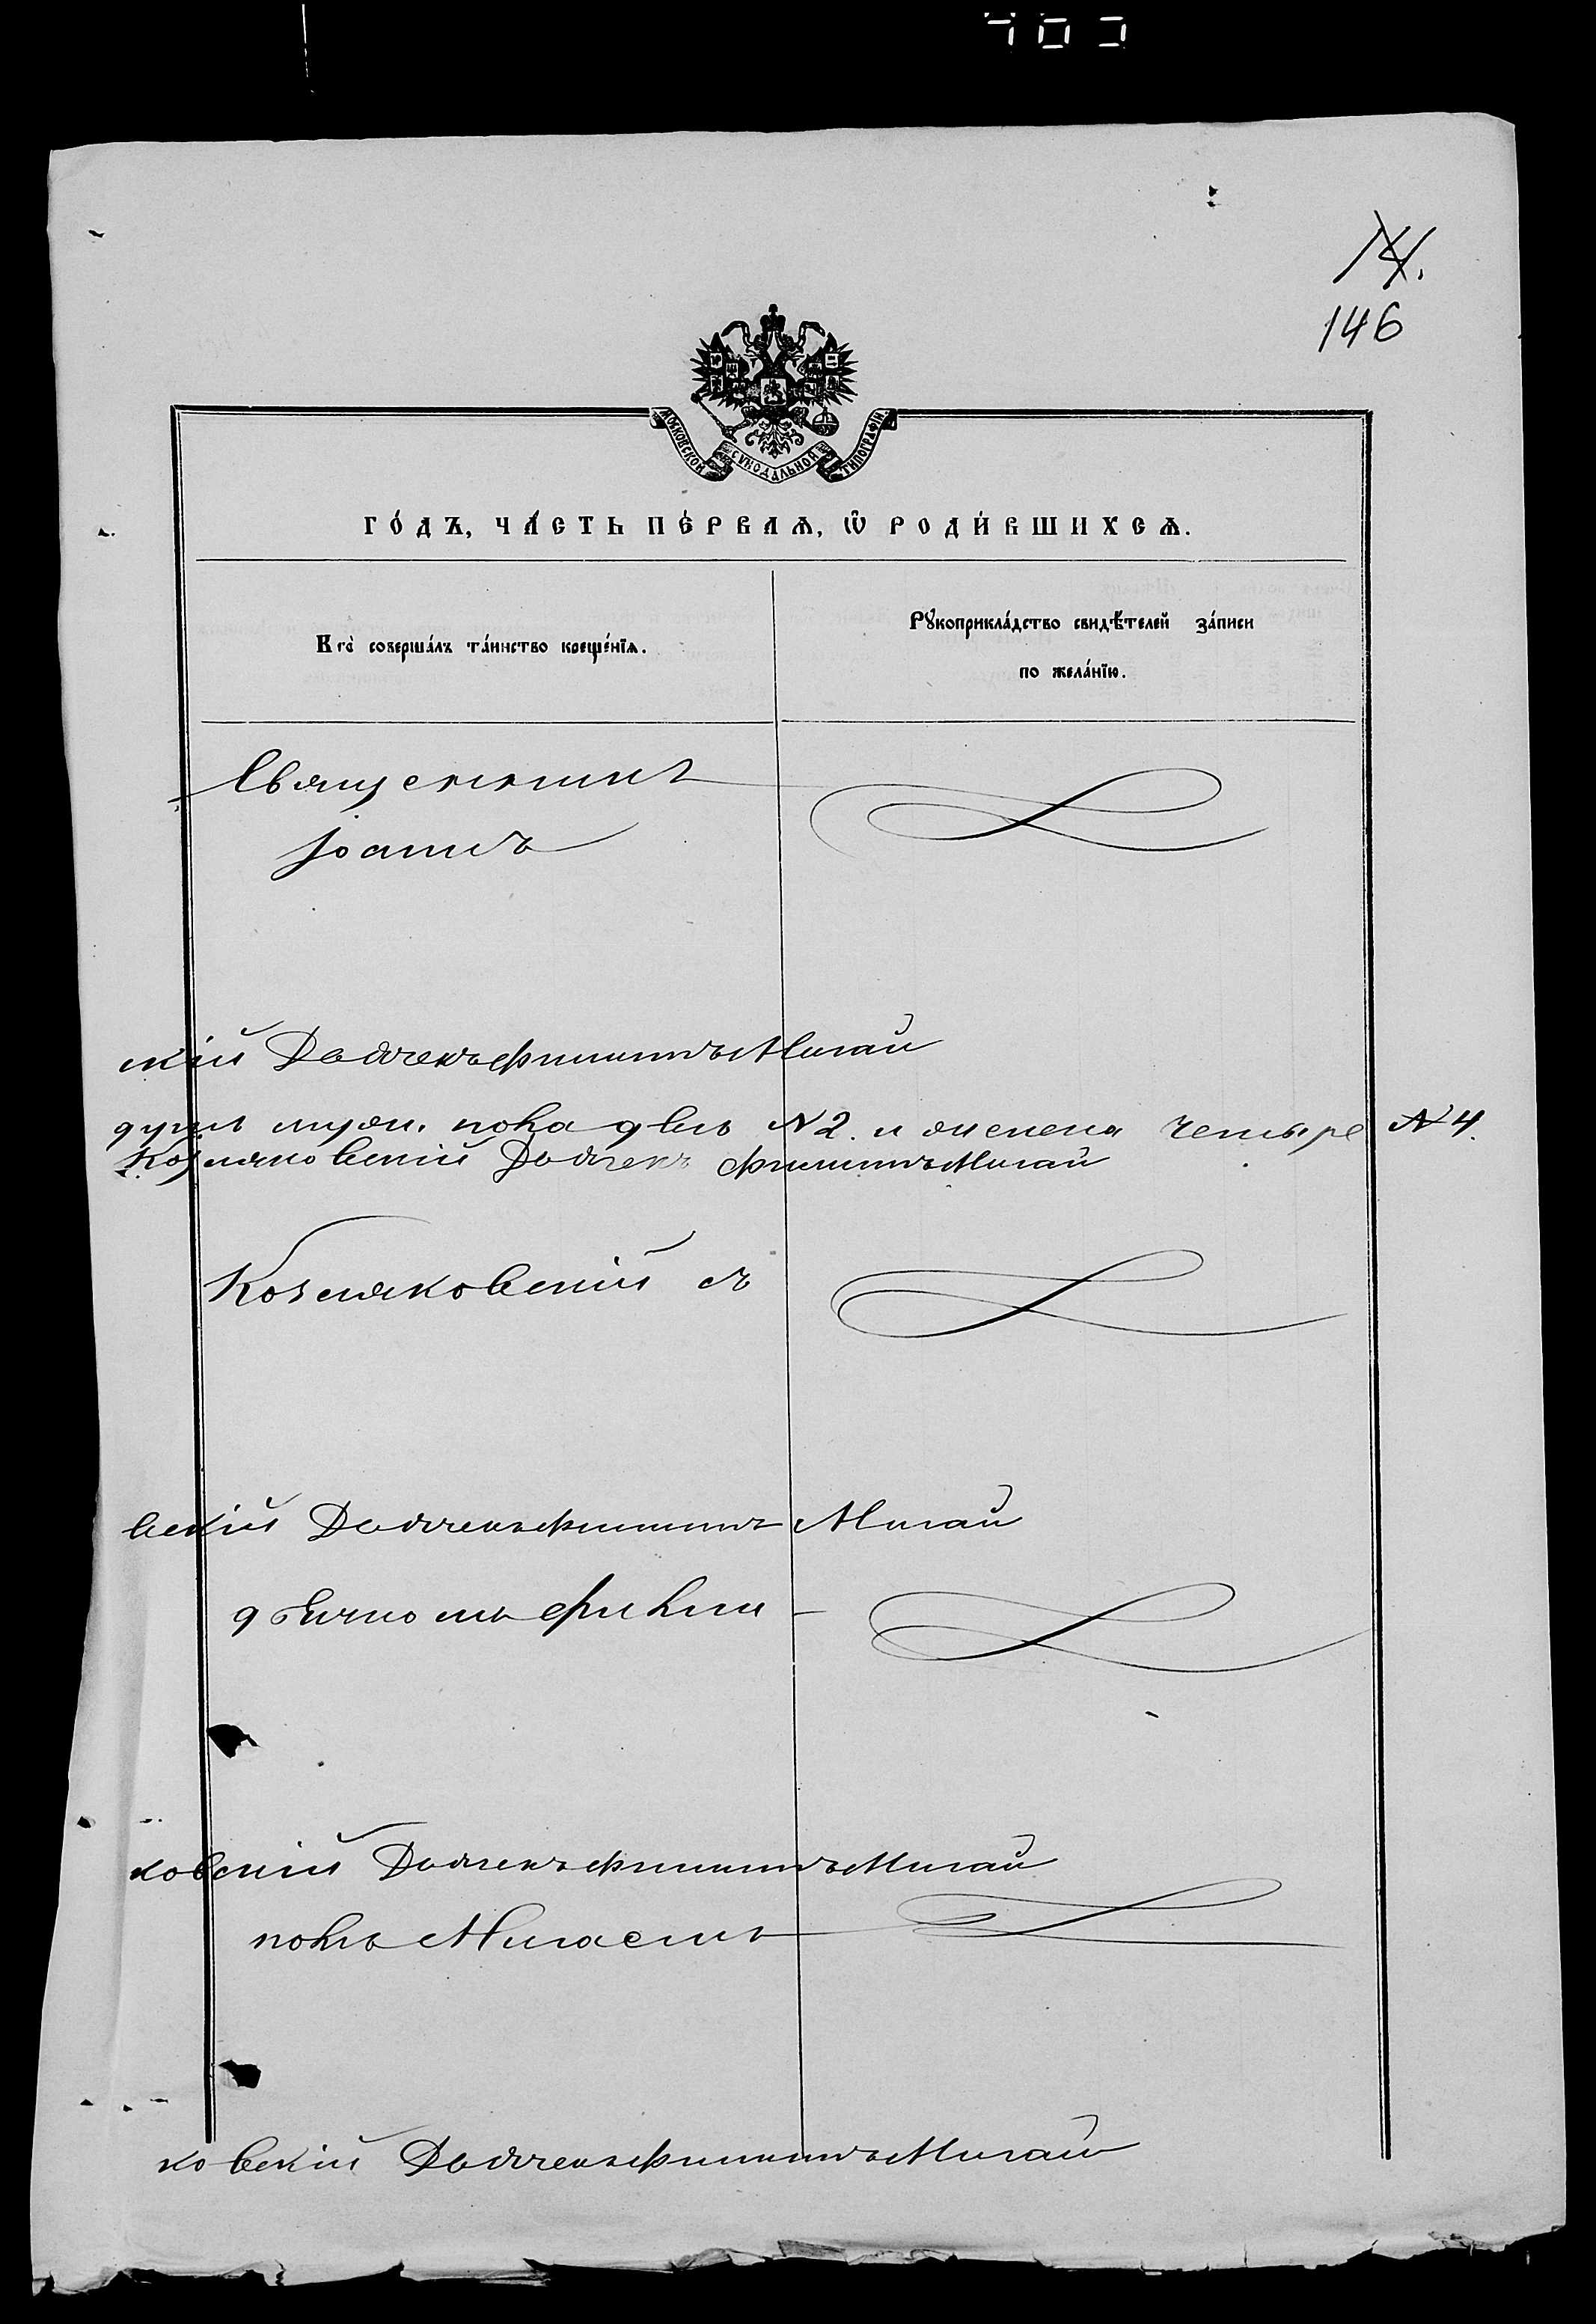 14.
146
МОСКОВСКОЙ СѴНОДАЛЬНОЙ ТИПОГРАФІИ
ГО́ДЪ, ЧА́СТЬ ПЕ́РВАѦ, Ѽ РОДИ́ВШИХСѦ.
Кто̀ соверша́лъ та́инство креще́нїѧ.
Рꙋкоприкла́дство свидѣ́телей за́писи
по жела́нїю.
Священникъ
Іоаннъ
скій Дьячекъ Филиппъ Мигай
душъ муж. пола двѣ № 2. и женска четыре № 4.
Козляковскій Дьячекъ Филиппъ Мигай
Козляковскій съ
вскій Дьячекъ Филиппъ Мигай
дьячкомъ Фили
ковскій Дьячекъ Филиппъ Мигай
помъ Мигаемъ
ковскій Дьячекъ Филиппъ Мигай